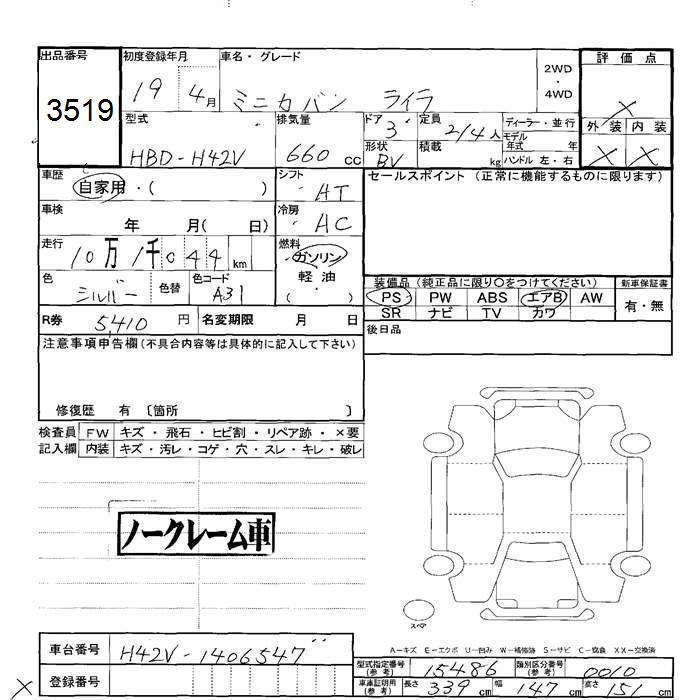 出品番号 初度登録年月 車名・グレード 2WD 評価点
3519 19 4月 ミニカバン ライラ ・ 4WD ×
型式 排気量 ドア 定員 ディーラー・並行 外装 内装
HBD-H42V 660cc 3 2/4人 モデル年式 年 × ×
形状 BV 積載 kg ハンドル 左・右
車歴 自家用・( ) シフト AT セールスポイント(正常に機能するものに限ります)
車検 年 月( 日) 冷房 AC
走行 10万1千044km 燃料 ガソリン
軽油
色 シルバー 色替 色コード A31 ( ) 装備品(純正品に限り○をつけてください) 新車保証書
PS PW ABS エアB AW 有・無
R券 5,410円 名変期限 月 日 SR ナビ TV カワ
注意事項申告欄(不具合内容等は具体的に記入して下さい) 後日品
修復歴 有〔箇所 〕
検査員 FW キズ・飛石・ヒビ割・リペア跡・×要
記入欄 内装 キズ・汚レ・コゲ・穴・スレ・キレ・破レ
ノークレーム車
スペア
A-キズ E-エクボ U-凹み W-補修跡 S-サビ C-腐食 XX-交換済
車台番号 H42V-1406547
型式指定番号(参考) 15486 類別区分番号(参考) 0010
× 登録番号 車庫証明用(参考) 長さ 339cm 幅 147cm 高さ 151cm